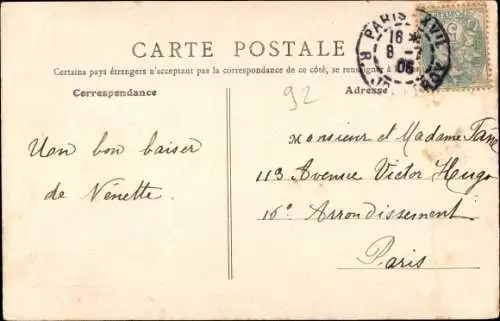 CARTE POSTALE
Certains pays étrangers n'acceptant pas la correspondance de ce côté, se
Correspondance
Adresse
92
PARIS
16
8 - 7
06
Un bon baiser
de Nénette.
Monsieur et Madame
113 Avenue Victor Hugo
16e Arrondissement
Paris